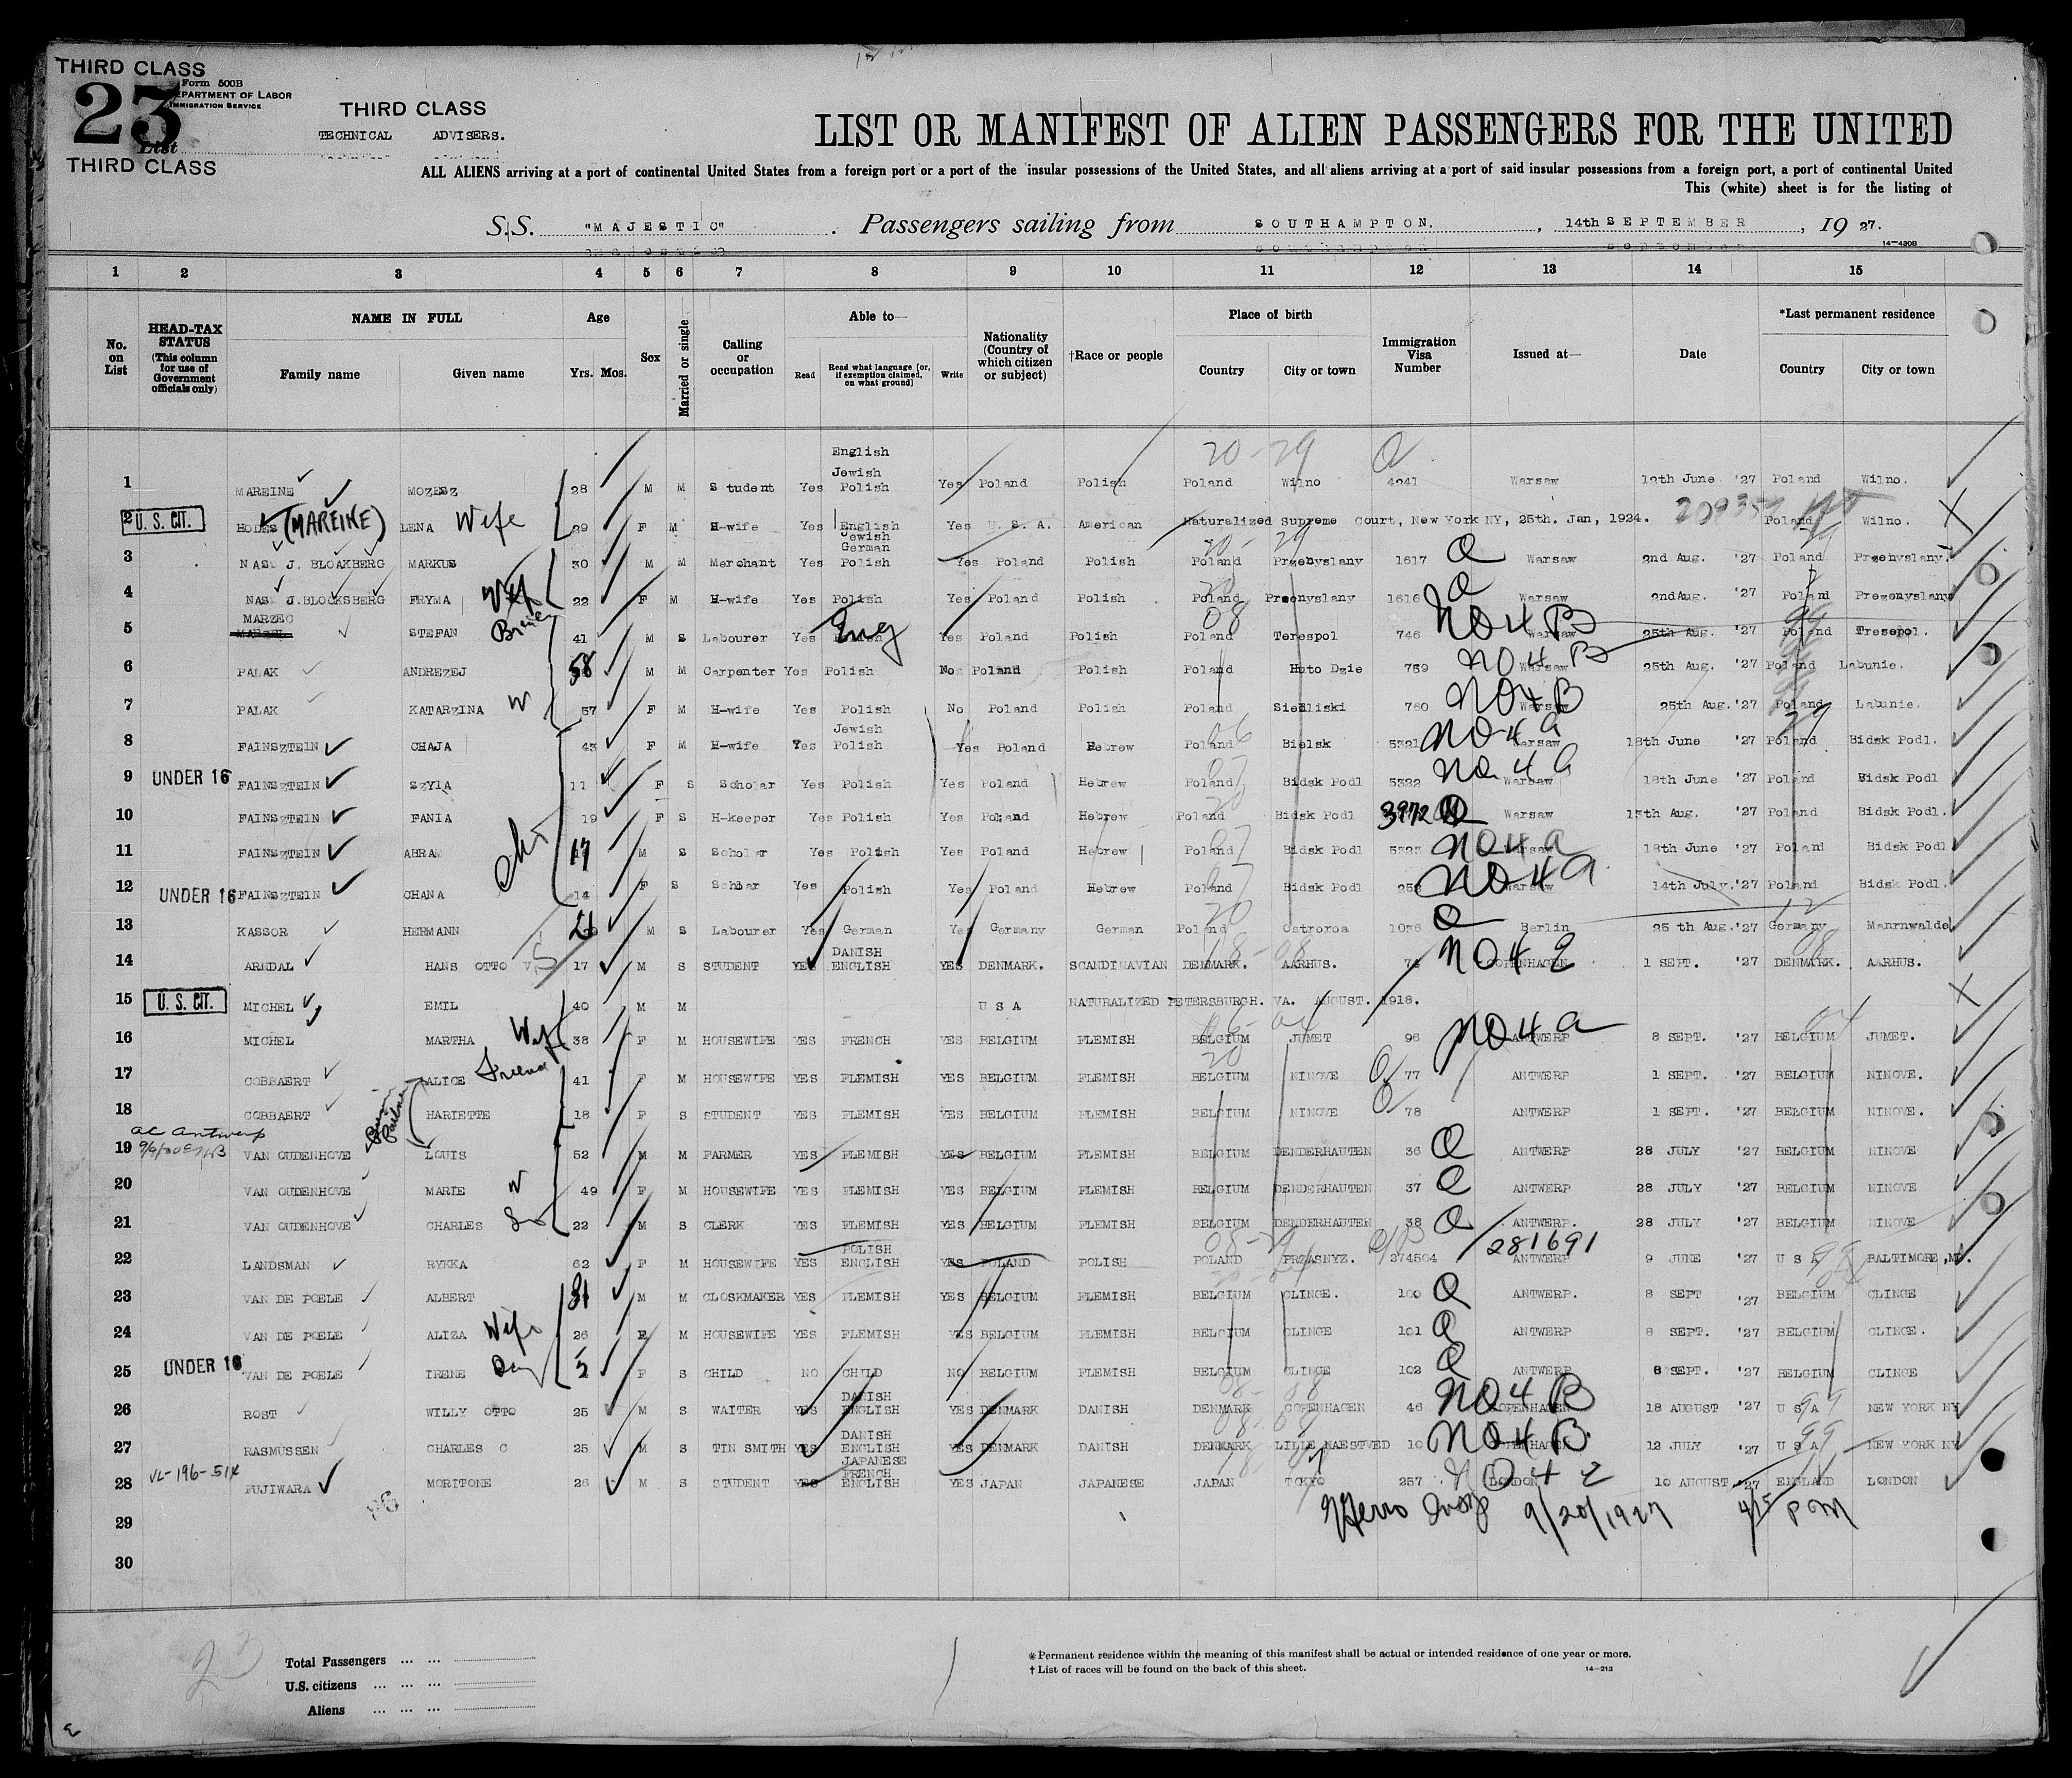 THIRD CLASS
Form 500B
DEPARTMENT OF LABOR
IMMIGRATION SERVICE
23
List
THIRD CLASS
THIRD CLASS
TECHNICAL ADVISERS.
LIST OR MANIFEST OF ALIEN PASSENGERS FOR THE UNITED
ALL ALIENS arriving at a port of continental United States from a foreign port or a port of the insular possessions of the United States, and all aliens arriving at a port of said insular possessions from a foreign port, a port of continental United
This (white) sheet is for the listing of
S.S. "MAJESTIC". Passengers sailing from SOUTHAMPTON., 14th SEPTEMBER, 19 27.
14-430B
1 2 3 4 5 6 7 8 9 10 11 12 13 14 15
No. on List
HEAD-TAX STATUS (This column for use of Government officials only)
NAME IN FULL Family name Given name
Age Yrs. Mos.
Sex
Married or single
Calling or occupation
Able to— Read Read what language [or, if exemption claimed, on what ground] Write
Nationality (Country of which citizen or subject)
†Race or people
Place of birth Country City or town
Immigration Visa Number
Issued at—
Date
*Last permanent residence Country City or town
20-29 Q
1 MAREINE MOZESZ 28 M M Student Yes English Jewish Polish Yes Poland Polish Poland Wilno 4241 Warsaw June '27 Poland Wilno.
2 U. S. CIT. HODES (MAREINE) LENA Wife 29 F M H-wife Yes English Yes U.S.A. American Naturalized Supreme Court, New York NY, 25th. Jan, 1924. Poland Wilno.
3 NAS J. BLOAKBERG MARKUS 30 M M Merchant Yes Jewish German Polish Yes Poland Polish Poland Przehyslany 1617 Q Warsaw 2nd Aug. '27 Poland Przehyslany.
4 NAS J.BLOCKSBERG FRYMA Wife 22 F M H-wife Yes Polish Yes Poland Polish Poland 1616 Q Warsaw 2ndAug. '27 Poland
5 MARZEC STEFAN 41 M S Labourer Yes Eng Yes Poland Polish Poland Terespol 746 NO4B Warsaw 25th Aug. '27 Poland Tresepol.
6 PALAK ANDRZEJ 58 M M Carpenter Yes Polish No Poland Polish Poland Huto Dzie 759 NO4B Warsaw 25th Aug. '27 Poland Labunie.
7 PALAK KATARZINA W 57 F M H-wife Yes Polish No Poland Polish Poland Siedliski 760 NO4B Warsaw 25th Aug. '27 Poland Labunie.
8 FAINSZTEIN CHAJA 43 F M H-wife Yes Jewish Polish Yes Poland Hebrew Poland Bielsk 5321 NO4a Warsaw 18th June '27 Poland Bidsk Podl.
9 UNDER 16 FAINSZTEIN SZYIA 11 F S Scholar Yes Polish Yes Poland Hebrew Poland Bidsk Podl 5322 NO4a Warsaw 18th June '27 Poland Bidsk Podl
10 FAINSZTEIN FANIA 19 F S H-keeper Yes Polish Yes Poland Hebrew Poland Bidsk Podl 3972 Q Warsaw 13th Aug. '27 Poland Bidsk Podl.
11 FAINSZTEIN ABRAM 17 M S Scholar Yes Polish Yes Poland Hebrew Poland Bidsk Podl 5323 NO4a Warsaw 18th June '27 Poland Bidsk Podl
12 UNDER 16 FAINSZTEIN CHANA 14 F S Scholar Yes Polish Yes Poland Hebrew Poland Bidsk Podl NO4a Warsaw 14th July.'27 Poland Bidsk Podl.
13 KASSOR HERMANN M S Labourer Yes German Yes Germany German Poland Ostroroa 1036 Q Berlin 25 th Aug.'27 Germany Manrnwalde
14 ARNDAL HANS OTTO V.S 17 M S STUDENT YES DANISH ENGLISH YES DENMARK. SCANDINAVIAN DENMARK. AARHUS. NO4 COPENHAGEN 1 SEPT. '27 DENMARK. AARHUS.
15 U. S. CIT. MICHEL EMIL 40 M M U S A NATURALIZED PETERSBURGH. VA. AUGUST. 1918.
16 MICHEL MARTHA Wife 38 F M HOUSEWIFE YES FRENCH YES BELGIUM FLEMISH BELGIUM JUMET 96 NO4a ANTWERP 8 SEPT. '27 BELGIUM JUMET.
17 COBBAERT ALICE Friend 41 F M HOUSEWIFE YES FLEMISH YES BELGIUM FLEMISH BELGIUM NINOVE 77 ANTWERP 1 SEPT. '27 BELGIUM NINOVE.
18 COBBAERT HARIETTE 18 F S STUDENT YES FLEMISH YES BELGIUM FLEMISH BELGIUM NINOVE 78 ANTWERP 1 SEPT. '27 BELGIUM NINOVE.
19 VAN OUDENHOVE LOUIS 52 M M FARMER YES FLEMISH YES BELGIUM FLEMISH BELGIUM DENDERHAUTEN 36 Q ANTWERP 28 JULY '27 BELGIUM NINOVE
20 VAN OUDENHOVE MARIE W 49 F M HOUSEWIFE YES FLEMISH YES BELGIUM FLEMISH BELGIUM DENDERHAUTEN 37 Q ANTWERP 28 JULY '27 BELGIUM NINOVE
21 VAN OUDENHOVE CHARLES 22 M S CLERK YES FLEMISH YES BELGIUM FLEMISH BELGIUM DENDERHAUTEN 38 Q ANTWERP. 28 JULY '27 BELGIUM NINOVE
281691
22 LANDSMAN RYKKA 62 F M HOUSEWIFE YES POLISH ENGLISH YES POLAND POLISH POLAND PRZASNYZ. 274504 ANTWERP 9 JUNE '27 U S A BALTIMORE,MD.
23 VAN DE POELE ALBERT 31 M M CLOSKMAKER YES FLEMISH YES BELGIUM FLEMISH BELGIUM CLINGE. 100 Q ANTWERP. 8 SEPT '27 BELGIUM CLINGE
24 VAN DE POELE ALIZA Wife 26 F M HOUSEWIFE YES FLEMISH YES BELGIUM FLEMISH BELGIUM CLINGE 101 Q ANTWERP 8 SEPT. '27 BELGIUM CLINGE.
25 UNDER 16 VAN DE POELE IRENE F S CHILD NO CHILD NO BELGIUM FLEMISH BELGIUM CLINGE 102 Q ANTWERP 8 SEPT. '27 BELGIUM CLINGE
26 ROST WILLY OTTO 25 M S WAITER YES DANISH ENGLISH YES DENMARK DANISH DENMARK COPENHAGEN 46 NO4B COPENHAGEN 18 AUGUST '27 U S A NEW YORK NY
27 RASMUSSEN CHARLES C 25 M S TIN SMITH YES DANISH ENGLISH YES DENMARK DANISH DENMARK LILLE NAESTVED 10 NO4B 12 JULY '27 U S A NEW YORK NY
28 FUJIWARA MORITONE 26 M S STUDENT YES JAPANESE FRENCH ENGLISH YES JAPAN JAPANESE JAPAN TOKYO 257 LONDON 10 AUGUST '27 ENGLAND LONDON
9/20/1927 415 PM
29
30
Total Passengers ... ...
U.S. citizens ... ... ...
Aliens ... ... ...
* Permanent residence within the meaning of this manifest shall be actual or intended residence of one year or more.
† List of races will be found on the back of this sheet.
14-213